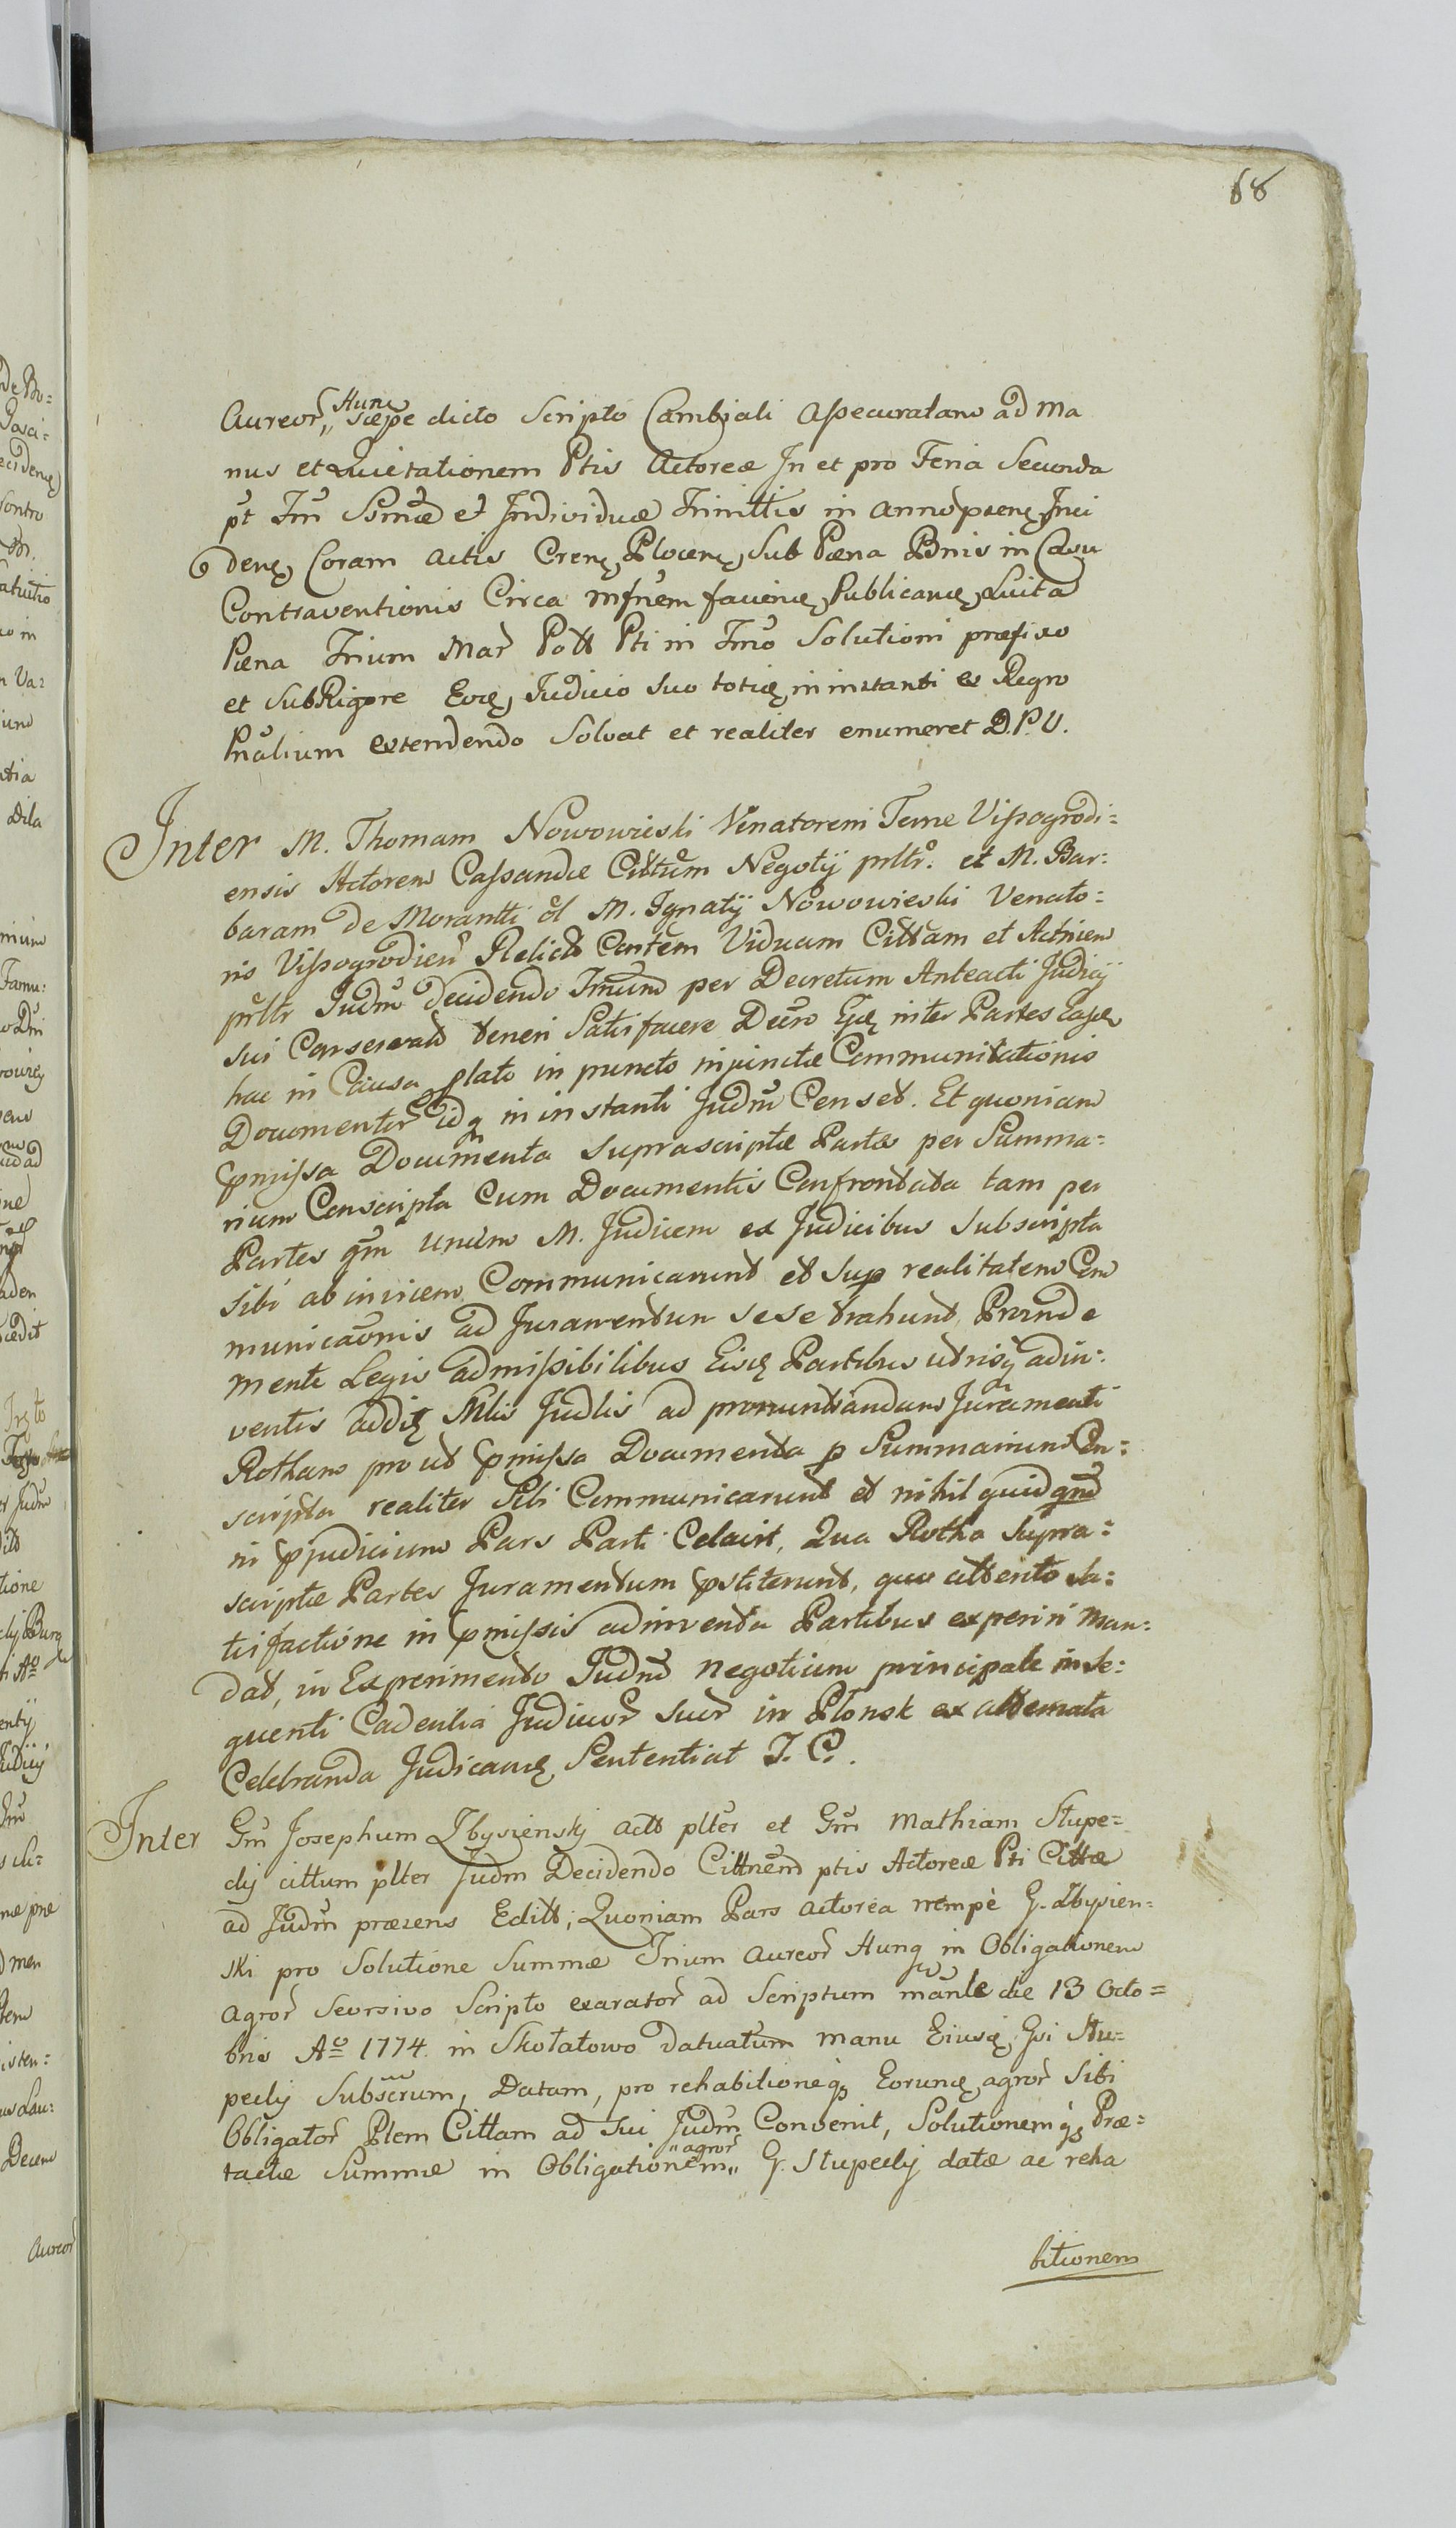 68
Aureor Hung saepe dicto Scripto Cambiali Assecuratam ad Ma
nus et Quietationem Ptis Actoreæ In et pro Feria Secunda
pt Fm Ssmæ et Individuæ Trinittis in anno præsen Inci
den Coram actis Cren Plocen Sub Pæna Bnis in Casu
Contraventionis Circa mfnem facien Publican Luita
Pæna Trium Mar Poll Pti in Tmo Solutioni præfixo
et Sub Rigore Eor Judicio suo toties in instanti ex Regro
Pnalium extendendo Solvat et realiter enumeret D.P.V.
Inter M. Thomam Nowowieski Venatorem Terræ Vissogrodi=
ensis Actorem Cassandæ Cittum Negotij prltr. et M. Bar=
baram de Morantti ol M. Ignatij Nowowieski Venato=
ris Vissogrodien Relict Contem Viduam Cittam et Actricem
prltr Judm decidendo Tmum per Decretum Anteacti Judicij
sui Conservat teneri Satisfacere Decro Ejus inter Partes Eas
hac in Causa plato in puncto injunctæ Communicationis
Documentor idq in instanti Judm Censet. Et quoniam
pmissa Documenta suprascriptæ Partes per Summa=
rium Conscripta Cum Documentis Confrontata tam per
Partes qm unum M. Judicem ex Judicibus subscripta
sibi ab invicem Communicarunt et Sup realitatem Com
municaonis ad Juramentum sese trahunt, Proinde
mente Legis admissibilibus Eis Partibus utrisq adin=
ventis addit Mlis Judlis ad pronuntiandam Juramenti
Rotham prout pmissa Documenta p Summarium Con=
scripta realiter Sibi Communicarunt et nihil quidqnd
in pjudicium Pars Parti Celavit, Qua Rotha supra=
scriptæ Partes Juramentum pstiterunt, quo attento Sa=
tisfactione in pmissis adinventa Partibus experiri Man=
dat, in Experimento Judm negotium principale in se=
quenti Cadentia Judicior Suor in Plonsk ex alternata
Celebranda Judicand Sententiat I. C.
Inter Gm Josephum Zbysienskj act plter et Gm Mathiam Stupe=
cij cittum plter Judm Decidendo Cittnem ptis Actoreæ Pti Cittæ
ad Judm præsens Editt; Quoniam Pars actorea nempè G. Zbysien=
ski pro Solutione Summæ Trium Aureor Hung in Obligationem
agror Seorsivo Scripto exarator ad Scriptum manle die 13 Octo=
bris Ao 1774 in Skotatowo Datuatum manu Eiusd Gsi Stu=
pecij Subscrum, Datam, pro rehabitioneq Eorund agror Sibi
Obligator Ptem Cittam ad sui Judm Convenit, Solutionemq Præ=
tactæ Summæ in Obligationem agror G. Stupecij datæ ac reha
bitionem